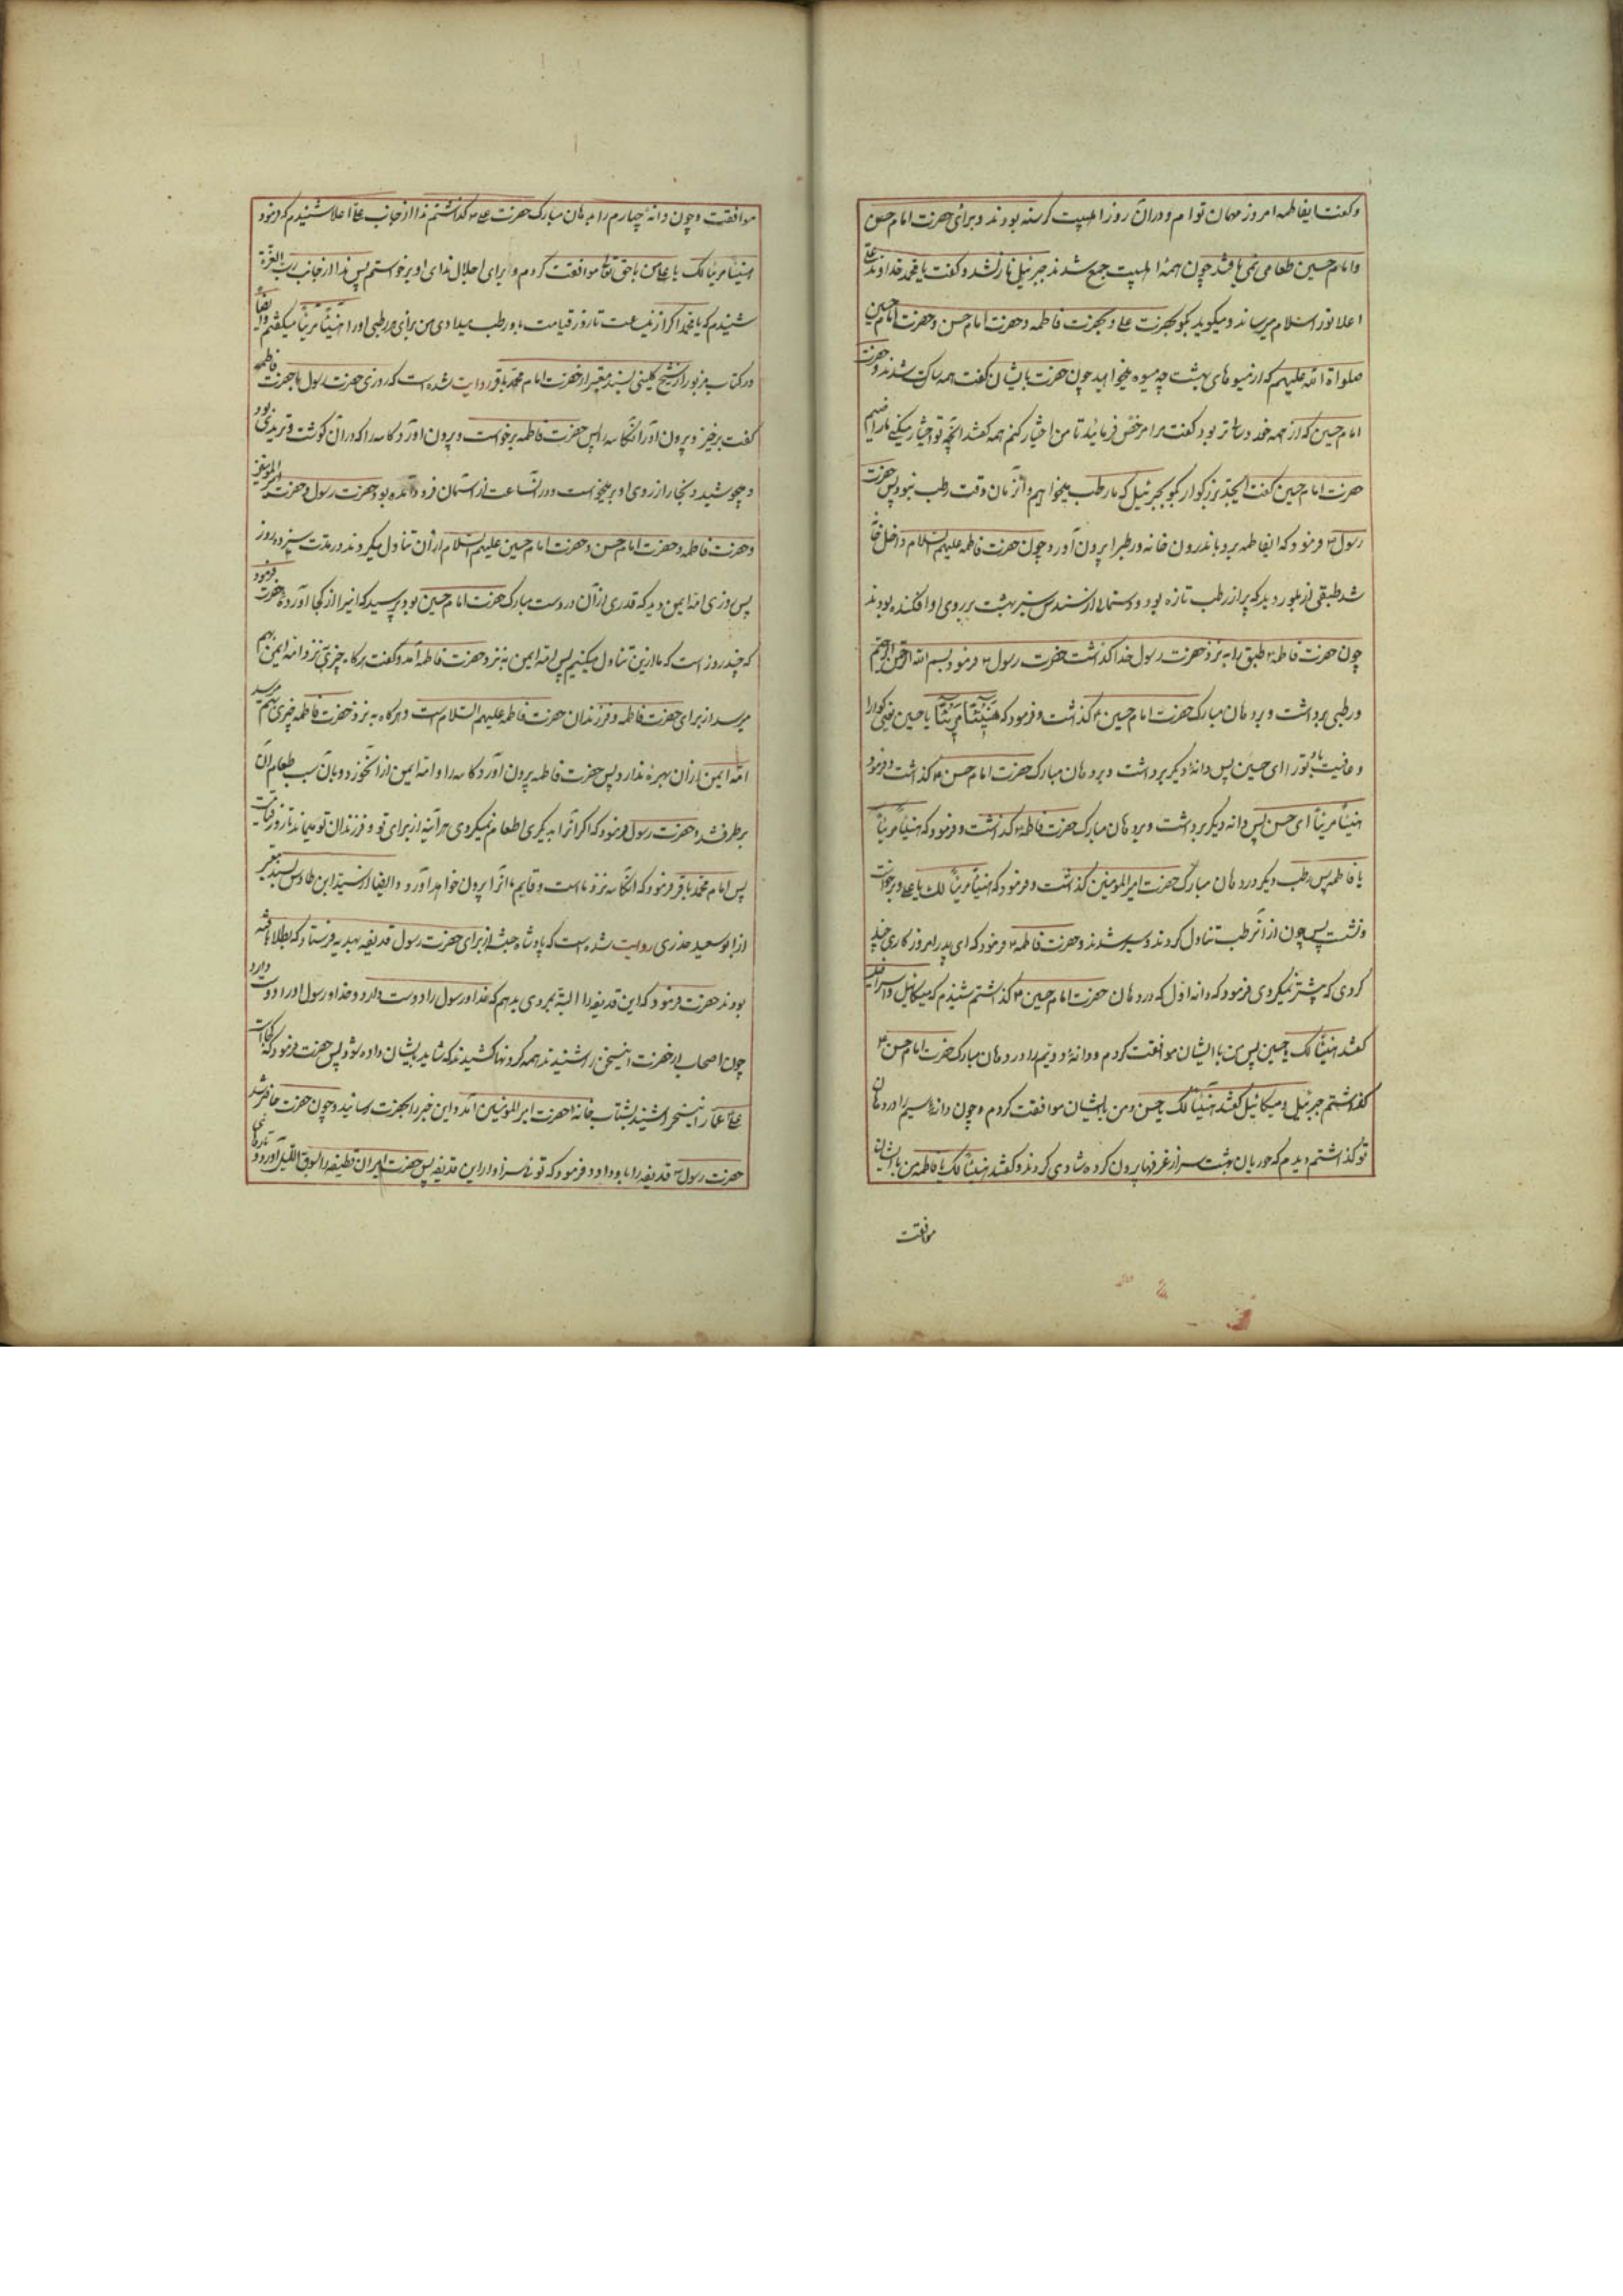 و گفت ایفاطمه امروز مهمان توام و دران روز اهلبیت گرسنه بودند و برای حضرت امام حسن
و امام حسین طعامی نمی یافتند چون همهٔ اهلبیت جمع شدند جبرئیل نازلشد و گفت یا محمد خداوند علی
اعلا تورا سلام میرساند و میگوید بگو بحضرت علی و بحضرت فاطمه و حضرت امام حسن و حضرت امام حسین
صلواة الله علیهم که از میوهای بهشت چه میوه میخواهید چون حضرت بایشان گفت همه ساکت شدند و حضرت
امام حسین که از همه خورد سالتر بود گفت مرا مرخص فرمائید تا من اختیار کنم همه گفتند آنچه تو اختیار میکنی ما راضیم
حضرت امام حسین گفت ایجد بزرگوار بگو بجبرئیل که ما رطب میخواهیم و انزمان وقت رطب نبود پس حضرت
رسول ص فرمود که ایفاطمه برو باندرون خانه و رطبرا برون آور و چون حضرت فاطمه علیهم السلام داخل خانه
شد طبقی از بلور دید که پر از رطب تازه بود و دستمالی از سندس سبز بهشت بر روی او افکنده بودند
چون حضرت فاطمه طبق را به نزد حضرت رسول خدا گذاشت حضرت رسول ص فرمود بسم الله الرحمن الرحیم
و رطبی برداشت و بر دهان مبارک حضرت امام حسین گذاشت و فرمود که هنیئاً مریئاً یا حسین یعنی گوارا
و عافیت باد تورا ای حسین پس دانه دیگر برداشت و بر دهان مبارک حضرت امام حسن گذاشت و فرمود
هنیئاً مریئاً ای حسن پس دانه دیگر برداشت و بر دهان مبارک حضرت فاطمه گذاشت و فرمود که هنیئاً مریئاً
یا فاطمه پس رطب دیگر در دهان مبارک حضرت امیر المومنین گذاشت و فرمود که هنیئاً مریئاً لک یا علی و برخواست
و نشست پس چون از آنرطب تناول کردند و سیر شدند حضرت فاطمه فرمود که ای پدر امروز کاری چند
کردی که پیشتر نمیکردی فرمود که دانه اول که در دهان حضرت امام حسین گذاشتم شنیدم که میکائیل و اسرافیل
گفتند هنیئاً لک یا حسین پس من با ایشان موافقت کردم و دانهٔ دویم را در دهان مبارک حضرت امام حسن
گذاشتم جبرئیل و میکائیل گفتند هنیئاً لک یا حسن و من بایشان موافقت کردم و چون دانهٔ سیم را در دهان
تو گذاشتم دیدم که حوریان بهشت سر از غرفها برون کرده شادی کردند و گفتند هنیئاً لک یا فاطمه من با ایشان
موافقت
موافقت و چون دانهٔ چهارم را به دهان مبارک حضرت علی گذاشتم ندا از جانب علی اعلا شنیدم که فرمود
هنیئاً مریئاً لک یا علی من با حق تعالی موافقت کردم و برای اجلال ندای او برخواستم پس ندا از جانب رب العزة
شنیدم که یا محمد اگر ازین ساعت تا روز قیامت باو رطب میدادی من برای هر رطبی اورا هنیئاً مریئاً میگفتم و ایضاً
در کتاب مزبور از شیخ کلینی بسند معتبر از حضرت امام محمد باقر روایت شده است که روزی حضرت رسول با حضرت فاطمه
گفت برخیز و برون آور آنکاسه را پس حضرت فاطمه برخواست و برون آورد کاسه را که دران گوشت و ثریدی بود
و جوشید و بخار از روی او برمیخواست و در انساعت از آسمان فرود آمده بود حضرت رسول و حضرت امیر المومنین
و حضرت فاطمه و حضرت امام حسن و حضرت امام حسین علیهم السلام از آن تناول میکردند در مدت سیزده روز
پس روزی امه ایمن دید که قدری از آن در دست مبارک حضرت امام حسین بود پرسید که انیرا از کجا آورده حضرت فرمود
که چند روز است که ما ازین تناول میکنیم پس امه ایمن به نزد حضرت فاطمه آمد و گفت هرگاه چیزی نزد امه ایمن بهم
میرسد از برای حضرت فاطمه و فرزندان حضرت فاطمه علیهم السلام است و هرگاه به نزد حضرت فاطمه چیزی بهم میرسد
امه ایمن از آن بهره ندارد پس حضرت فاطمه برون آورد کاسه را و امه ایمن از آنخورد و بآن سبب طعام آن
برطرفشد حضرت رسول فرمود که اگر آنرا بدیگری اطعام نمیکردی هر آینه از برای تو و فرزندان تو میماند تا روز قیامت
پس امام محمد باقر فرمود که آنکاسه نزد ماست و قایم ما آنرا برون خواهد آورد و ایضا از سید ابن طاوس بسند معتبر
از ابو سعید خدری روایت شده است که پادشاه حبشه از برای حضرت رسول قدیفه بهدیه فرستاد که بطلا بافته
بودند حضرت فرمود که این قدیفه را البته بمردی بدهم که خدا و رسول را دوست دارد و خدا و رسول اورا دوست دارد
چون اصحاب از حضرت اینسخن را شنیدند همه گردنها کشیدند که شاید بایشان داده شود پس حضرت فرمود که کجاست
علی عمار اینسخن را شنید بشتاب بخانهٔ حضرت امیر المومنین آمد و این خبر را بحضرت رسانید و چون حضرت حاضر شد
حضرت رسول ص قدیفه را باو داد و فرمود که توئی سزاوار این قدیفه پس حضرت امیر ان قطیفه را بسوق اللیل آورد و تارهای